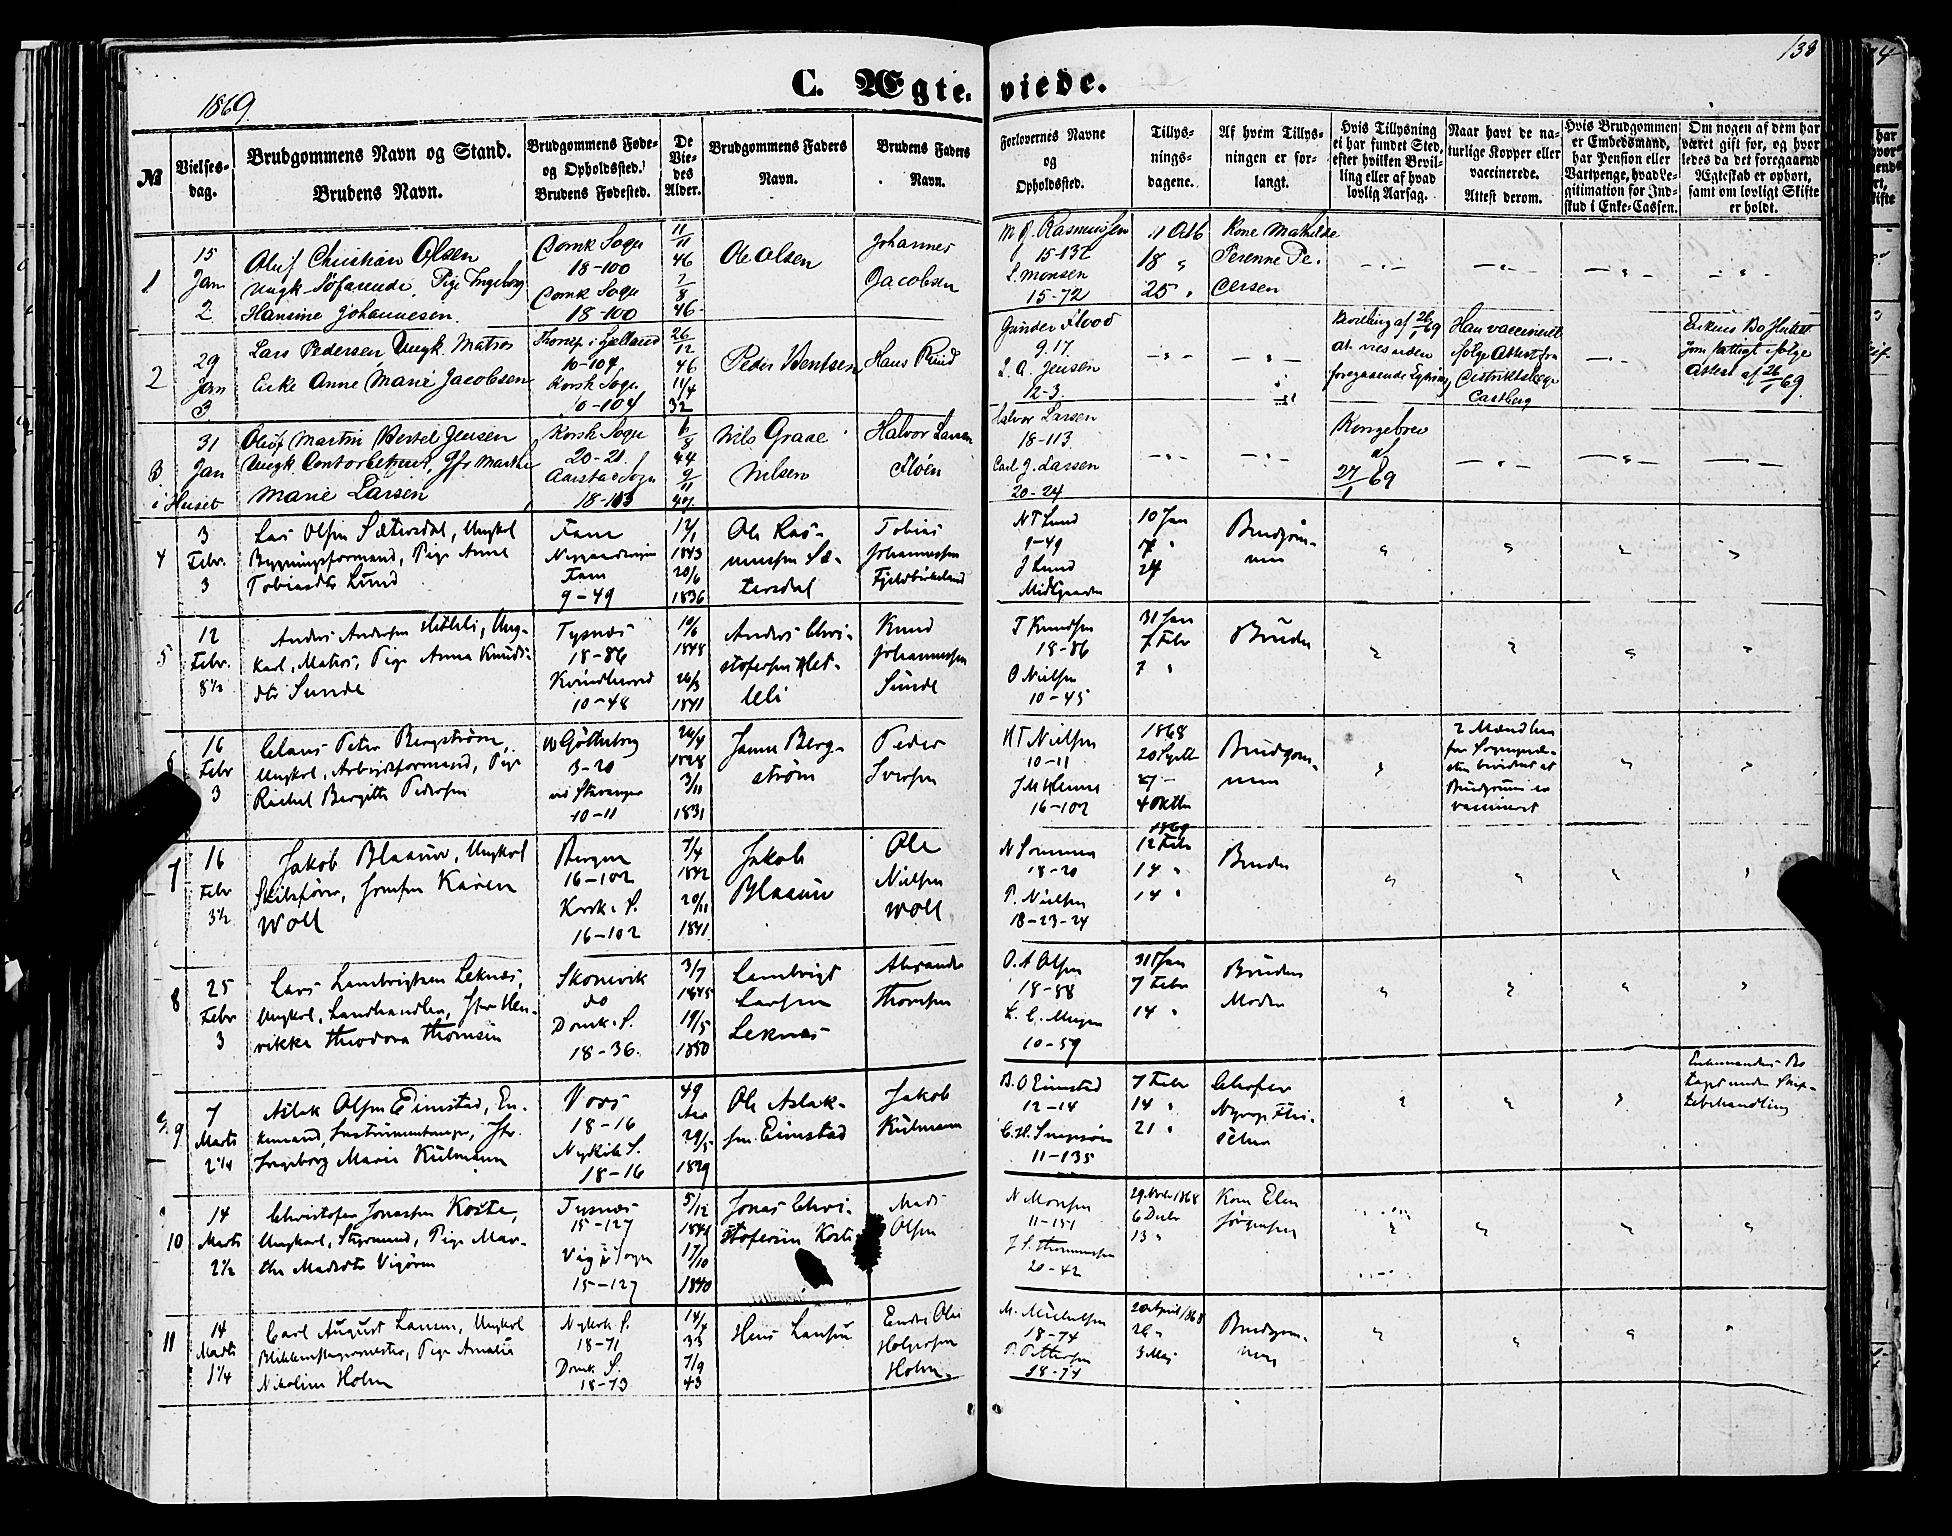 138
C. Ægteviede.
1869
№
Vielsesdag.
Brudgommens Navn og Stand.
Brudens Navn.
Brudgommens Føde- og Opholdssted.
Brudens Fødested.
De Viedes Alder.
Brudgommens Faders Navn.
Brudens Faders Navn.
Forlovernes Navne og Opholdssted.
Tillysningsdagene.
Af hvem Tillysningen er forlangt.
Hvis Tillysning ei har fundet Sted, efter hvilken Bevilling eller af hvad lovlig Aarsag.
Naar havt de naturlige Kopper eller vaccinerede.
Attest derom.
Hvis Brudgommen er Embedsmand, har Pension eller Vartpenge, hvad Legitimation for Indskud i Enke-Cassen.
Om nogen af dem har været gift før, og hvorledes da det foregaaende Ægteskab er ophørt, samt om lovligt Skifte er holdt.
1
15 Jan 2
Oluf Christian Olsen
Ungk Søfarende, Pige Ingeborg
Hansine Johannesen
Domk Sogn
18-100
Domk Sogn
18-100
11/11 46
7/8 46
Ole Olsen
Johannes
Jacobsen
Rasmussen
15-132
L. Monsen
15-72
18 "
25 "
Kone Mathilde
Perenne Pedersen
2
29 Jan 3
Lars Pedersen Ungk. Matros
Enke Anne Marie Jacobsen
10-104
Korsk Sogn
10-104
26/12 46
11/4 32
Peder Bentsen
Hans Knud
Gunder Flood
9.17.
L. A. Jensen
12-3.
Bevilling af 26/1 69
at vies uden
foregaaende Lysning
Han vaccineret
ifølge Attest fra
Districtslæge
Castberg
Enkens Bo
ifølge
Attest af 26/1 69.
3
31 Jan
i Huset
Oluf Martin Bertel Jensen
Ungk Contorbetjent, Jfr Marthe
Marie Larsen
Korsk Sogn
20-21
Aarstad Sogn
18-113
6/8 44
9/11 49
Nils Graae
Nilsen
Halvor Larsen
Floen
Halvor Larsen
18-113
Carl J. Larsen
20-24
Kongebrev
af
27/1 69
4
3 Febr. 3
Lars Olsen Sætersdal, Ungkl
Bygningsformand, Pige Anne
Tobiasdtr Lund
Fane
Fane
9-49
12/1 1843
20/6 1836
Ole Rasmussen Sætersdal
Tobias
Johannessen
Fjeldbirkeland
N T Lund
9-49
J Lund
Midtgaarden
10 Jan
17 "
24
Brudgommen
5
12 Febr. 8½
Anders Andersen Hetleli, Ungkarl, Matros, Pige Anna Knudsdtr Sunde
Tysnæs
18-86
Kvindherred
10-48
10/6 1848
26/3 1841
Anders Christofersen Hetleli
Knud
Johannessen
Sunde
T Knudsen
18-86
O Nielsen
10-45
31 Jan
7 Febr
7 "
Bruden
6
16 Febr 3
Claus Peter Bergstrøm,
Ungkl, Arbeidsformand, Pige
Rachel Bergitte Pedersen
v Gøtheborg
3-20
ved Stavanger
10-11
26/4 1828
3/11 1831
Janne Bergstrøm
Peder
Iversen
N T Nielsen
10-11
16-102
1868
20 Septb
27 -
4 Oktbr
Brudgommen
2 Mænd
bevidnet at
Brudgommen er
vaccineret
7
16 Febr 3½
Jakob Blaauw, Ungkarl
Skibsfører, Jomfru Karen
Woll
Bergen
16-102
Korsk. S.
16-102
7/4 1842
20/11 1841
Jakob
Blaauw
Ole
Nielsen
Woll
18-20
P. Nielsen
18-23-24
1869
12 Febr
14 "
14 "
Bruden
8
25 Febr 3
Lars Lambrigtsen Leknæs,
Ungkl, Landhandler, Jfr Henrikke Theodora Thomsen
Skonevik
do
Domk. S.
18-36.
3/7 1845
19/5 1850
Lambrigt
Larsen
Leknæs
Alexander
Thomsen
O. A Olsen
18-88
L. C. Meyer
10-59
31 Jan
7 Febr
14 "
Brudens
Moder
9
7 Marts 2¼
Aslak Olsen Eimstad, Enkemand, Instrumentmager, Jfr.
Ingeborg Marie Kulmann
Vors
18-16
Nykirk S.
18-16
49 Aar
29/5 1829
Ole Aslaksen Eimstad
Jakob
Kulmann
B. O Eimstad
12-14
11-135
7 Febr
14 "
21 "
Enkemandens Bo
taget under Skiftebehandling
10
14 Marts 2½
Christofer Jonassen Koste,
Ungkarl, Styrmand, Pige Marthe Madsdtr Vigøren
Tysnæs
15-127
Vigø Sogn
15-127
5/12
17/10 1840
Jonas Christofersen Koste
Mads
Olsen
N Monsen
11-151
20-42
29 Novbr 1868
6 Decbr
13 "
Kone Elen
Jørgensen
11
14 Marts 1¼
Carl August Lansen, Ungkl
Blikkenslagermester, Pige Amalie
Nikoline Holm
Nykirk S.
18-71
Domk S.
18-73
14/4 33
7/9 43
Hans Lansen
Endre Olai
Holgersen
Holm
M. Michelsen
18-74
P. Pettersen
18-74
20 April 1868
26 "
3 Mai
Brudgommen